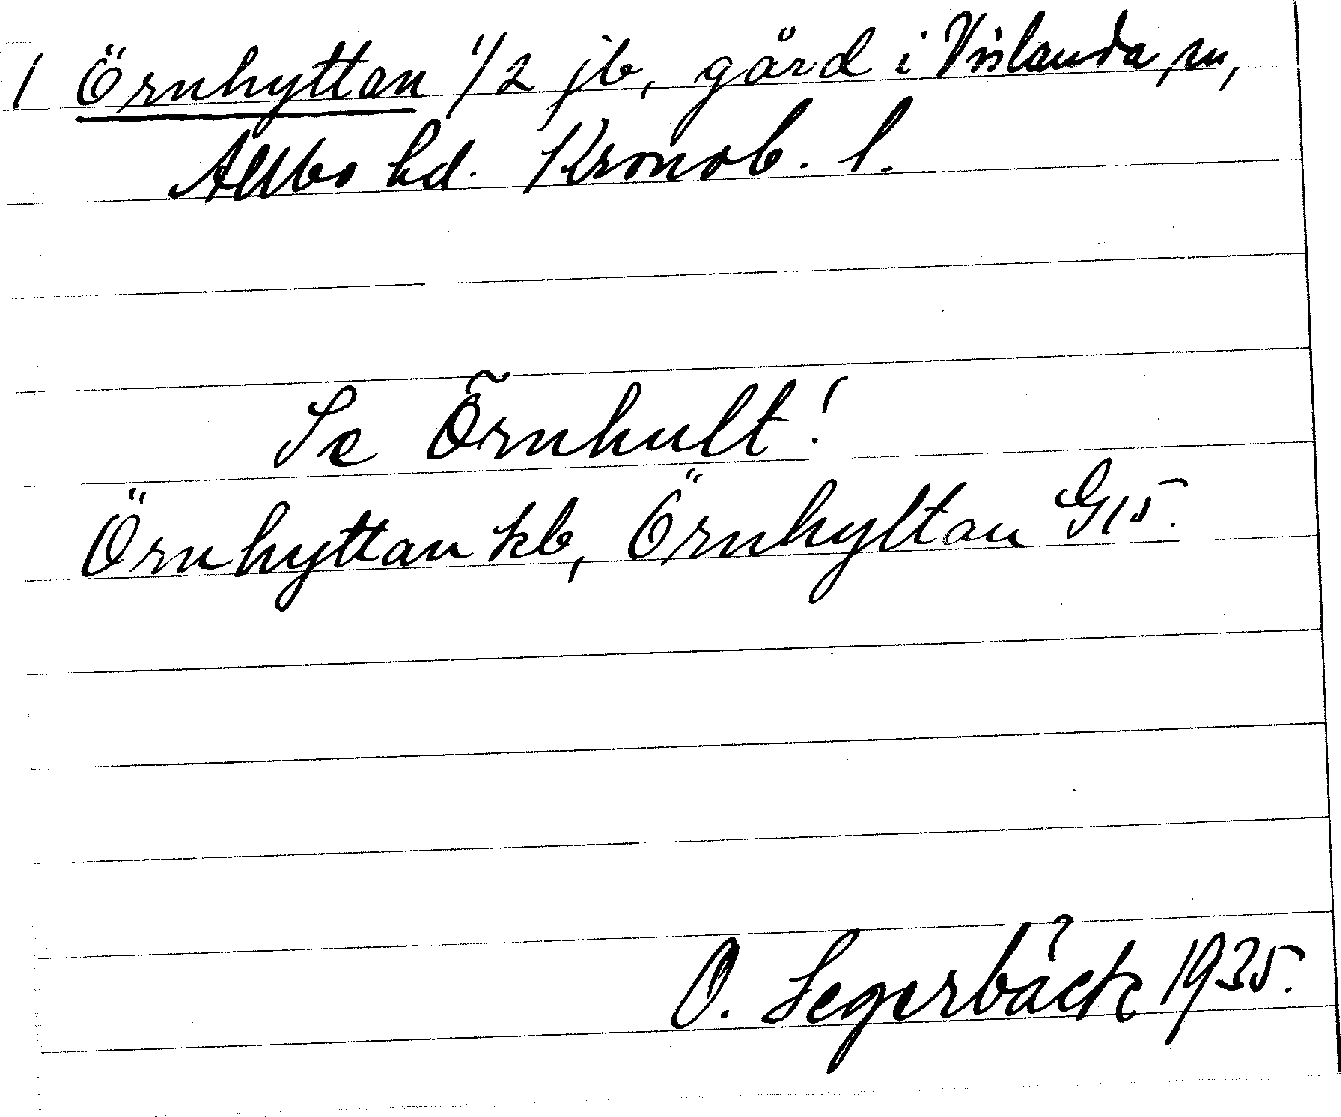 1 Örnhyttan 1/2 jb, gård i Vislanda sn,
Allbo hd. Kronob. l.
Se Örnhult!
Örnhyttan kb, Örnhyltan G15.
O. Segerbäck 1935.